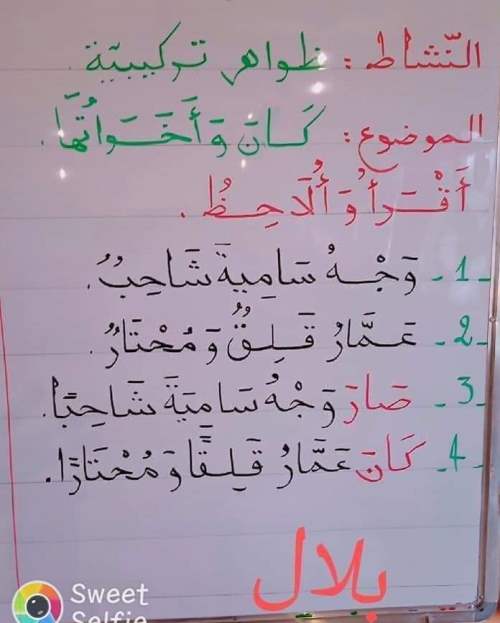 النّشاط : ظواهر تركيبيّة.
الموضوع : كَانَ وَأَخَوَاتُهَا.
أَقْرَأُ وَأُلَاحِظُ.
1- وَجْهُ سَامِيةَ شَاحِبٌ.
2- عَمَّارُ قَلِقٌ وَمُحْتَارٌ.
3- صَارَ وَجْهُ سَاميَةَ شَاحِبًا.
4- كَانَ عَمَّارُ قَلِقًا وَمُحْتَارًا.
بلال
Sweet
Selfie